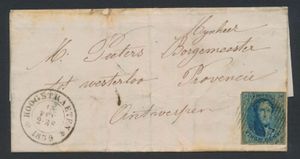 Mynheer
M. Peeters Borgemeester
tot westerloo Provencie
Antwerpen
HOOGSTRAETEN
1859